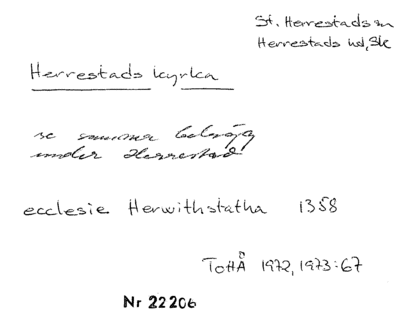 St. Herrestads sn
Herrestads hd, Sk
Herrestads kyrka
se samma belägg
under Herrestad
ecclesie Herwithstatha 1358
ToHÅ 1972, 1973:67
Nr 22206